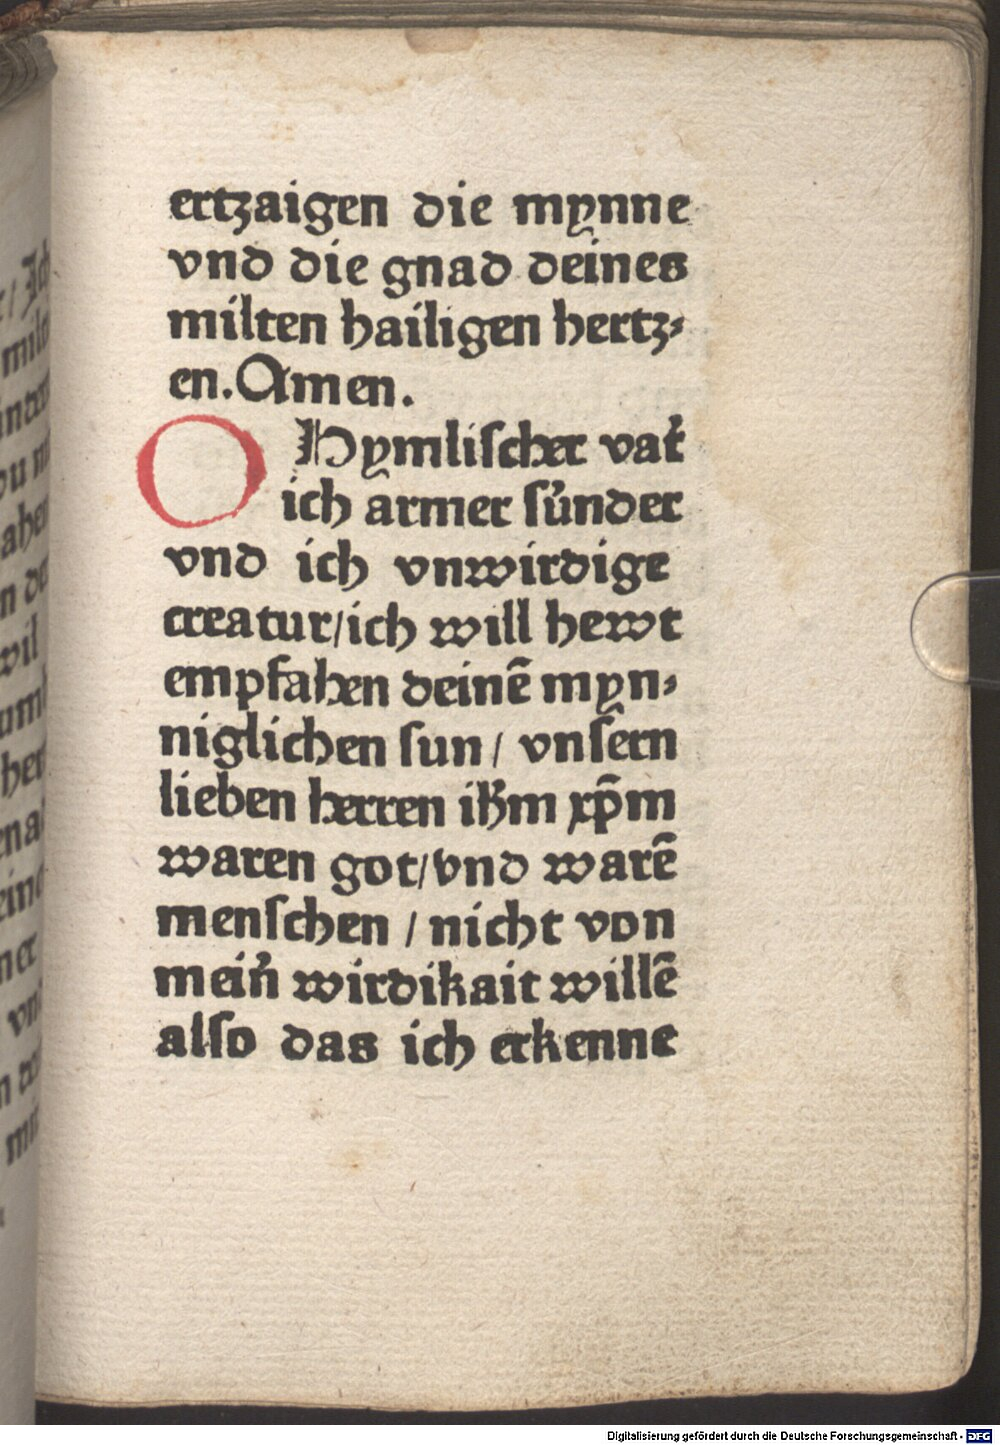 ertzaigen die mynne
vnd die gnad deines
milten hailigen hertz⸗
en. Amen.
O Hymlischer vat̄
ich armer sünder
vnd ich vnwirdige
creatur/ich will hewt
empfahen deinē myn⸗
niglichen sun/ vnsern
lieben herren ihm̄ xp̄m
waren got/vnd warē
menschen / nicht von
mein̄ wirdikait willē
also das ich erkenne
Digitalisierung gefördert durch die Deutsche Forschungsgemeinschaft - DFG